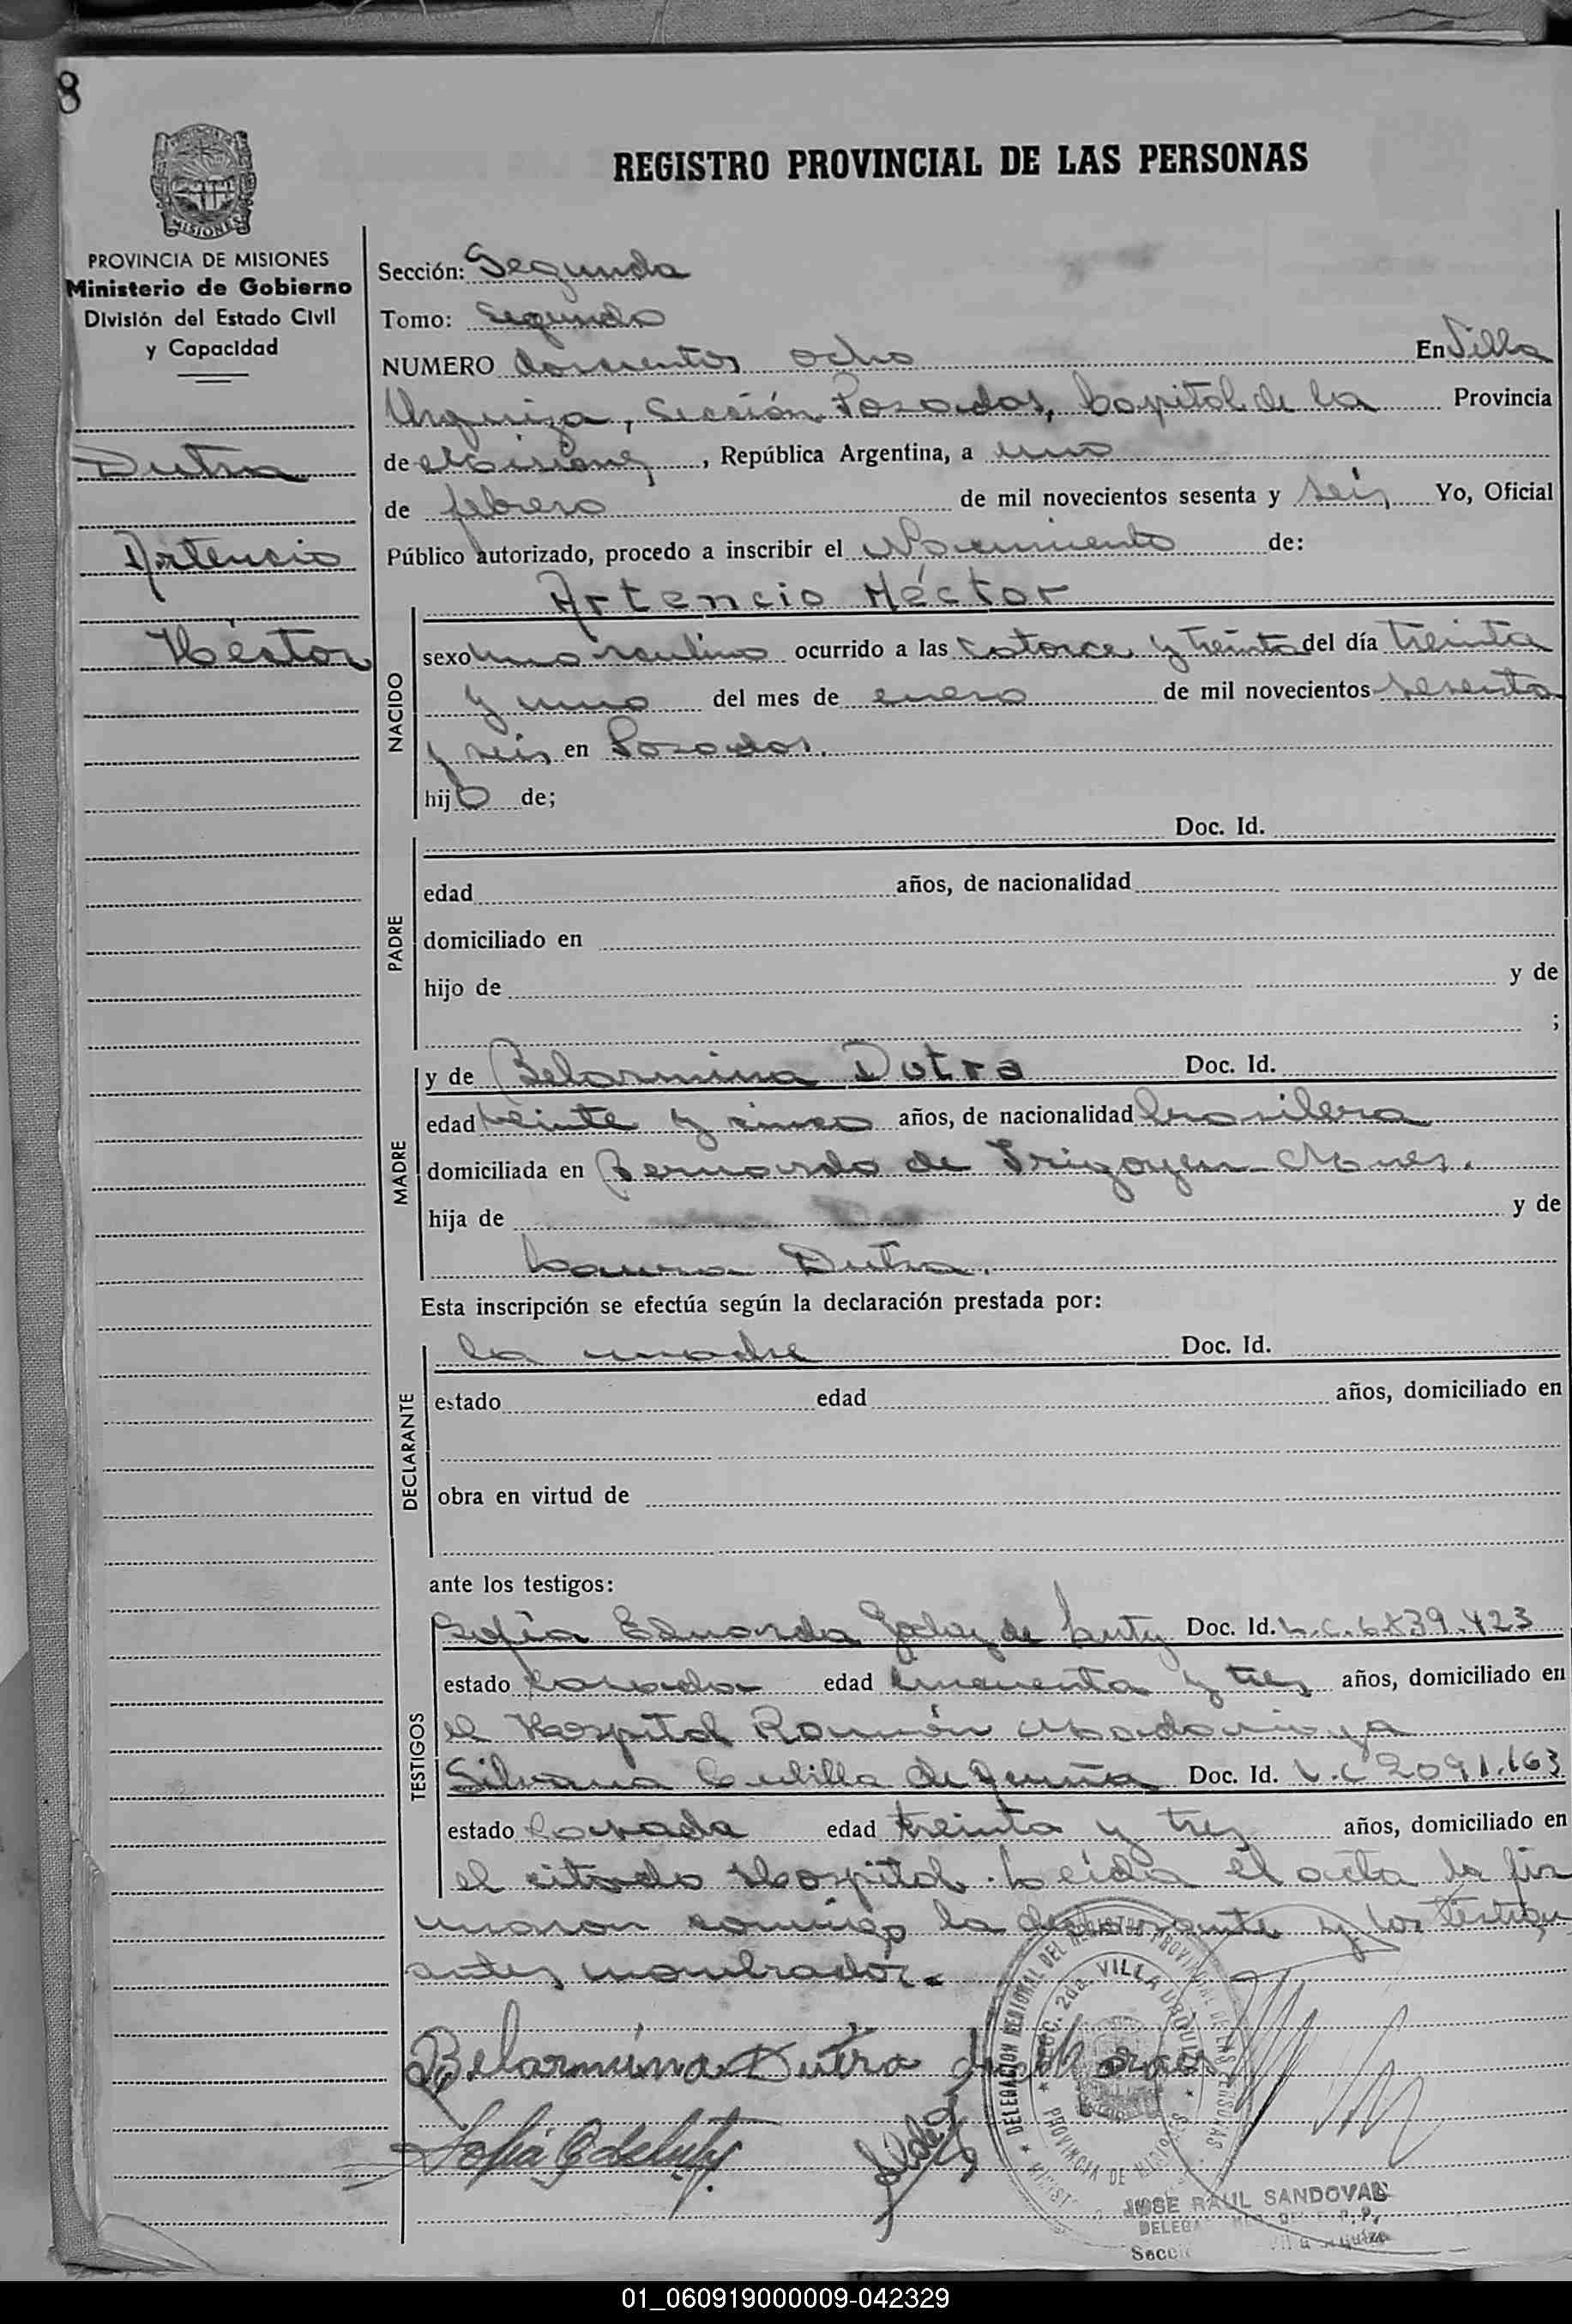 8
REGISTRO PROVINCIAL DE LAS PERSONAS
MISIONES
PROVINCIA DE MISIONES
Ministerio de Gobierno
División del Estado Civil
y Capacidad
Dutra
Artencio
Héctor
Sección: Segunda
Tomo: Segundo
NUMERO doscientos ocho En Villa
Urquiza, Sección Posadas, Capital de la Provincia
de Misiones, República Argentina, a uno
de febrero de mil novecientos sesenta y seis Yo, Oficial
Público autorizado, procedo a inscribir el Nacimiento de:
Artencio Héctor
NACIDO
sexo masculino ocurrido a las catorce y treinta del día treinta
y uno del mes de enero de mil novecientos sesenta
y seis en Posadas.
hijo de;
PADRE
Doc. Id.
edad años, de nacionalidad
domiciliado en
hijo de y de
;
MADRE
y de Belarmina Dutra Doc. Id.
edad veinte y cinco años, de nacionalidad brasilera
domiciliada en Bernardo de Irigoyen - Mnes.
hija de y de
Laura Dutra.
Esta inscripción se efectúa según la declaración prestada por:
DECLARANTE
la madre Doc. Id.
estado edad años, domiciliado en
obra en virtud de
ante los testigos:
TESTIGOS
Sofía Eduarda de Doc. Id. L.C. 6.839.423
estado casada edad cincuenta y tres años, domiciliado en
el Hospital Ramón Madariaga
Silvana de Doc. Id. L.C 2091.163
estado casada edad treinta y tres años, domiciliado en
el citado Hospital. Leída el acta la fir
maron conmigo la declarante y los testigos
antes nombrados.-
Belarmina Dutra
Sofía
DELEGACION REGIONAL DEL REGISTRO PROVINCIAL DE LAS PERSONAS
SECC. 2da. VILLA URQUIZA
PROVINCIA DE MISIONES
JOSE RAUL SANDOVAL
01_060919000009-042329